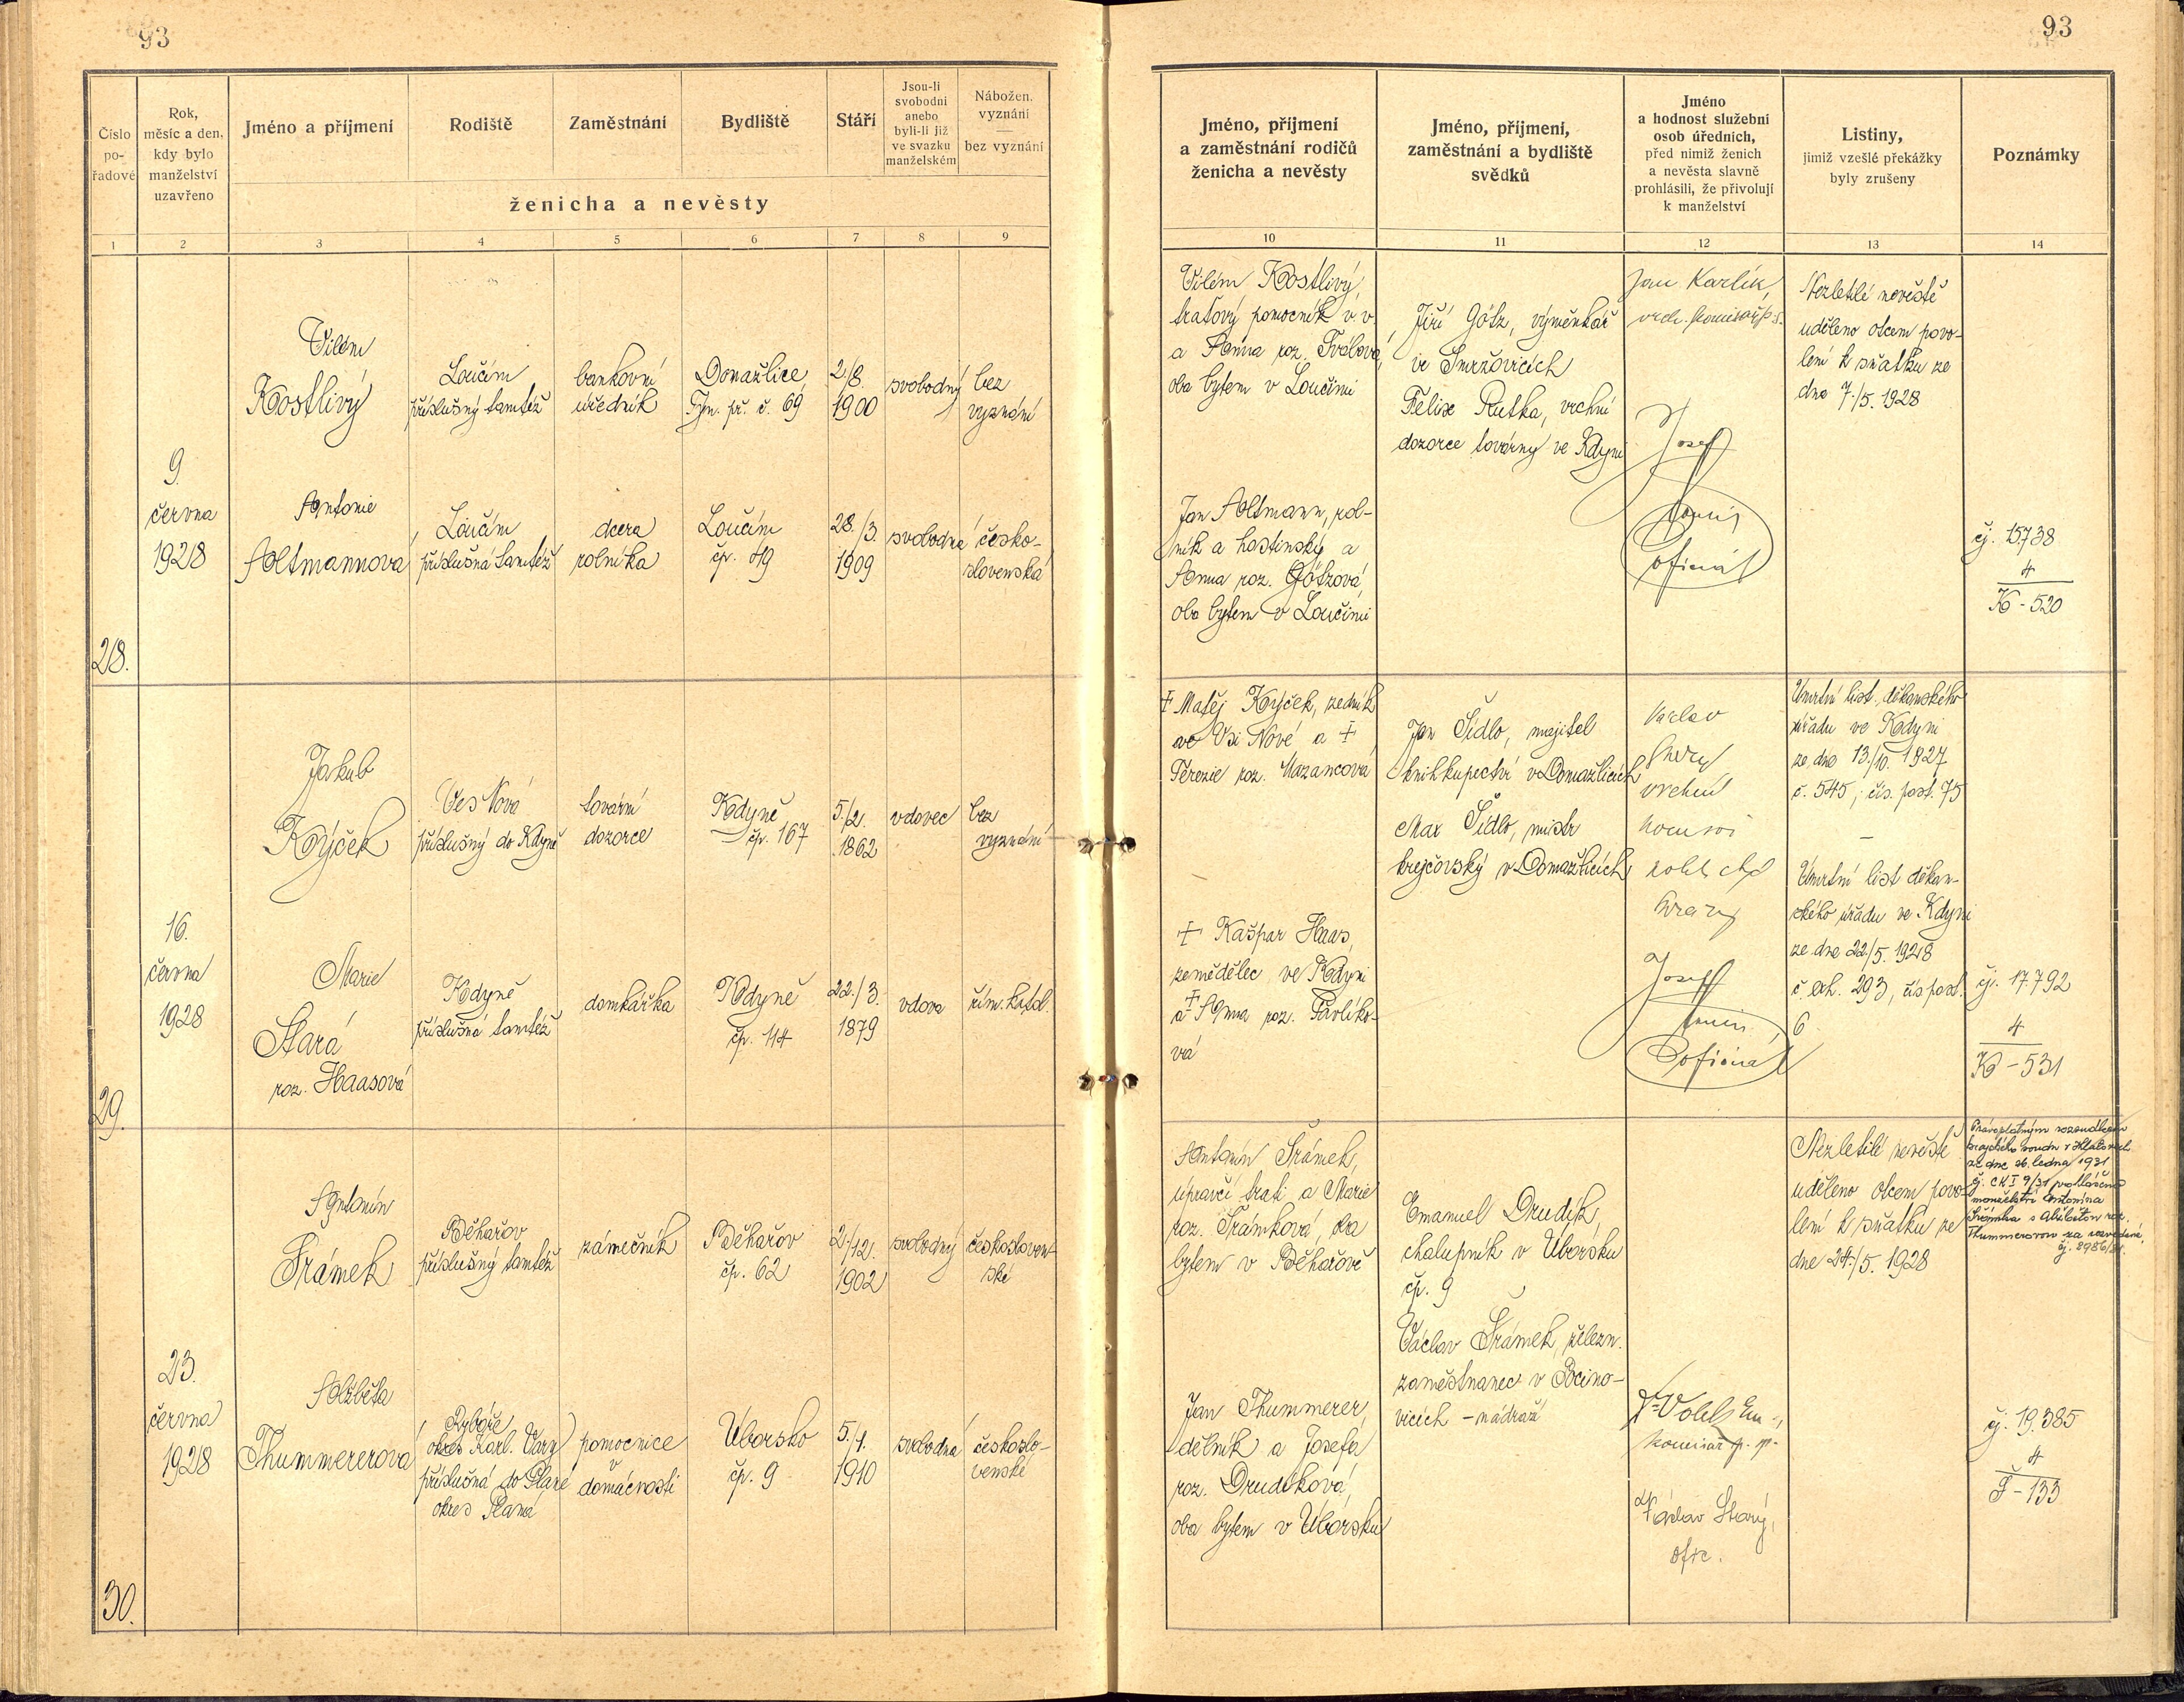 93
Číslo
po-
řadové
Rok,
měsíc a den,
kdy bylo
manželství
uzavřeno
Jméno a příjmení
Rodiště
Zaměstnání
Bydliště
Stáří
Jsou-li
svobodni
anebo
byli-li již
ve svazku
manželském
Nábožen.
vyznání
—
bez vyznání
ženicha a nevěsty
1 2 3 4 5 6 7 8 9
28.
9.
června
1928
Vilém
Kostlivý
Loučim
příslušný tamtéž
bankovní
úředník
Domažlice
Týn. př. č. 69
2/8.
1900
svobodný
bez
vyznání
Antonie
Altmannova
Loučim
příslušná tamtéž
dcera
rolníka
Loučim
čp. 49
28./3.
1909
svobodná
česko-
slovenská
29.
16.
června
1928
Jakub
Kýček
Ves Nová
příslušný do Kdyně
tovární
dozorce
Kdyně
čp. 167
5./2.
1862
vdovec
bez
vyznání
Marie
Stará
roz. Haasová
Kdyně
příslušná tamtéž
domkářka
Kdyně
čp. 114
22./3.
1879
vdova
řím. katol.
30.
23.
června
1928
Antonín
Šrámek
Běhařov
příslušný tamtéž
zámečník
Běhařov
čp. 62
2./12.
1902
svobodný
českosloven-
ské
Alžběta
Thummererova
Rybáře
okres Karl. Vary
příslušná do Plané
okres Planá
pomocnice
v
domácnosti
Úborsko
čp. 9
5./1.
1910
svobodná
českoslo-
venské
93
Jméno, příjmení
a zaměstnání rodičů
ženicha a nevěsty
Jméno, příjmení,
zaměstnání a bydliště
svědků
Jméno
a hodnost služební
osob úředních,
před nimiž ženich
a nevěsta slavně
prohlásili, že přivolují
k manželství
Listiny,
jimiž vzešlé překážky
byly zrušeny
Poznámky
10 11 12 13 14
Vilém Kostlivý,
traťový pomocník v v.
a Anna roz.
oba bytem v Loučimi
Jan Altmann, rol-
ník a hostinský a
Anna roz. Götzová,
oba bytem v Loučimi
Jiří Götz, výměnkář
ve Smržovicích
Felix Rutka, vrchní
dozorce továrny ve Kdyni
Jan Karlík,
vrch.
Josef
oficiál
Nezletilé nevěstě
uděleno otcem povo-
lení k sňatku ze
dne 7./5. 1928
čj. 15738
4
K - 520
† Matěj Kýček, zedník
ve Vsi Nové a †
Terezie roz. Mazancová
† Kašpar Haas,
zemědělec ve Kdyni
a † Anna roz. Pavlíko-
vá
Jan Šídlo, majitel
knihkupectví v Domažlicích
Max Šídlo, mistr
krejčovský v Domažlicích
Václav
vrchní
Josef
oficiál
Úmrtní list děkanského
úřadu ve Kdyni
ze dne 13./10. 1927
č. 545, čís. post. 75
—
Úmrtní list děkan-
ského úřadu ve Kdyni
ze dne 22/5. 1928
č. exh. 293, čís post.
6
čj. 17.792
4
K - 531
Antonín Šrámek,
úpravčí trati a Marie
roz. Šrámková, oba
bytem v Běhařově
Jan Thummerer,
dělník a Josefa
roz. Drudíková,
oba bytem v Úborsku
Emanuel Drudík,
chalupník v Úborsku
čp. 9
Václav Šrámek, železn.
zaměstnanec v Pocino-
vicích - nádraží
komisař p. p.
Václav Starý,
ofic.
Nezletilé nevěstě
uděleno otcem povo-
lení k sňatku ze
dne 24./5. 1928
Pravoplatným rozsudkem
krajského soudu v Klatovech
ze dne 26. ledna 1931
čj. Ck I 9/31 prohlášeno
manželství Antonína
Šrámka s Alžbětou roz.
Thummererovou za rozvedené,
čj. 19.385
4
Š - 133